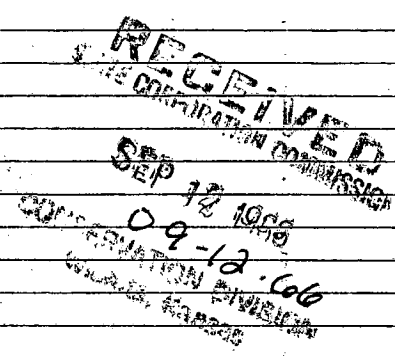 RECEIVED
STATE CORPORATION COMMISSION
SEP 12 1966
09-12-66
CONSERVATION DIVISION
Wichita, Kansas